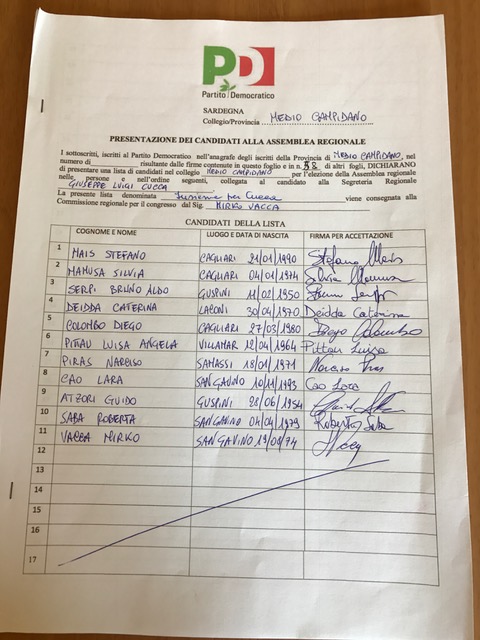 PD
Partito Democratico
SARDEGNA
Collegio/Provincia MEDIO CAMPIDANO
PRESENTAZIONE DEI CANDIDATI ALLA ASSEMBLEA REGIONALE
I sottoscritti, iscritti al Partito Democratico nell'anagrafe degli iscritti della Provincia di MEDIO CAMPIDANO, nel
numero di risultante dalle firme contenute in questo foglio e in n. di altri fogli, DICHIARANO
di presentare una lista di candidati nel collegio MEDIO CAMPIDANO per l'elezione della Assemblea regionale
nelle persone e nell'ordine seguenti, collegata al candidato alla Segreteria Regionale
GIUSEPPE LUIGI CUCCA
La presente lista denominata Insieme per Cucca viene consegnata alla
Commissione regionale per il congresso dal Sig. MIRKO VACCA
CANDIDATI DELLA LISTA
COGNOME E NOME LUOGO E DATA DI NASCITA FIRMA PER ACCETTAZIONE
1 MAIS STEFANO CAGLIARI 21/01/1990 Stefano Mais
2 MAMUSA SILVIA CAGLIARI 04/01/1974 Silvia Mamusa
3 SERPI BRUNO ALDO GUSPINI 11/02/1950
4 DEIDDA CATERINA LACONI 30/04/1970 Deidda Caterina
5 COLOMBO DIEGO CAGLIARI 27/03/1980 Diego Colombo
6 PITTAU LUISA ANGELA VILLAMAR 12/04/1964 Pittau Luisa
7 PIRAS NARCISO SAMASSI 18/01/1971 Narciso Piras
8 CAO LARA SANGAVINO 10/11/1993 Cao Lara
9 ATZORI GUIDO GUSPINI 28/06/1954
10 SABA ROBERTA SANGAVINO 04/04/1979 Roberta Saba
11 VACCA MIRKO SANGAVINO
12
13
14
15
16
17